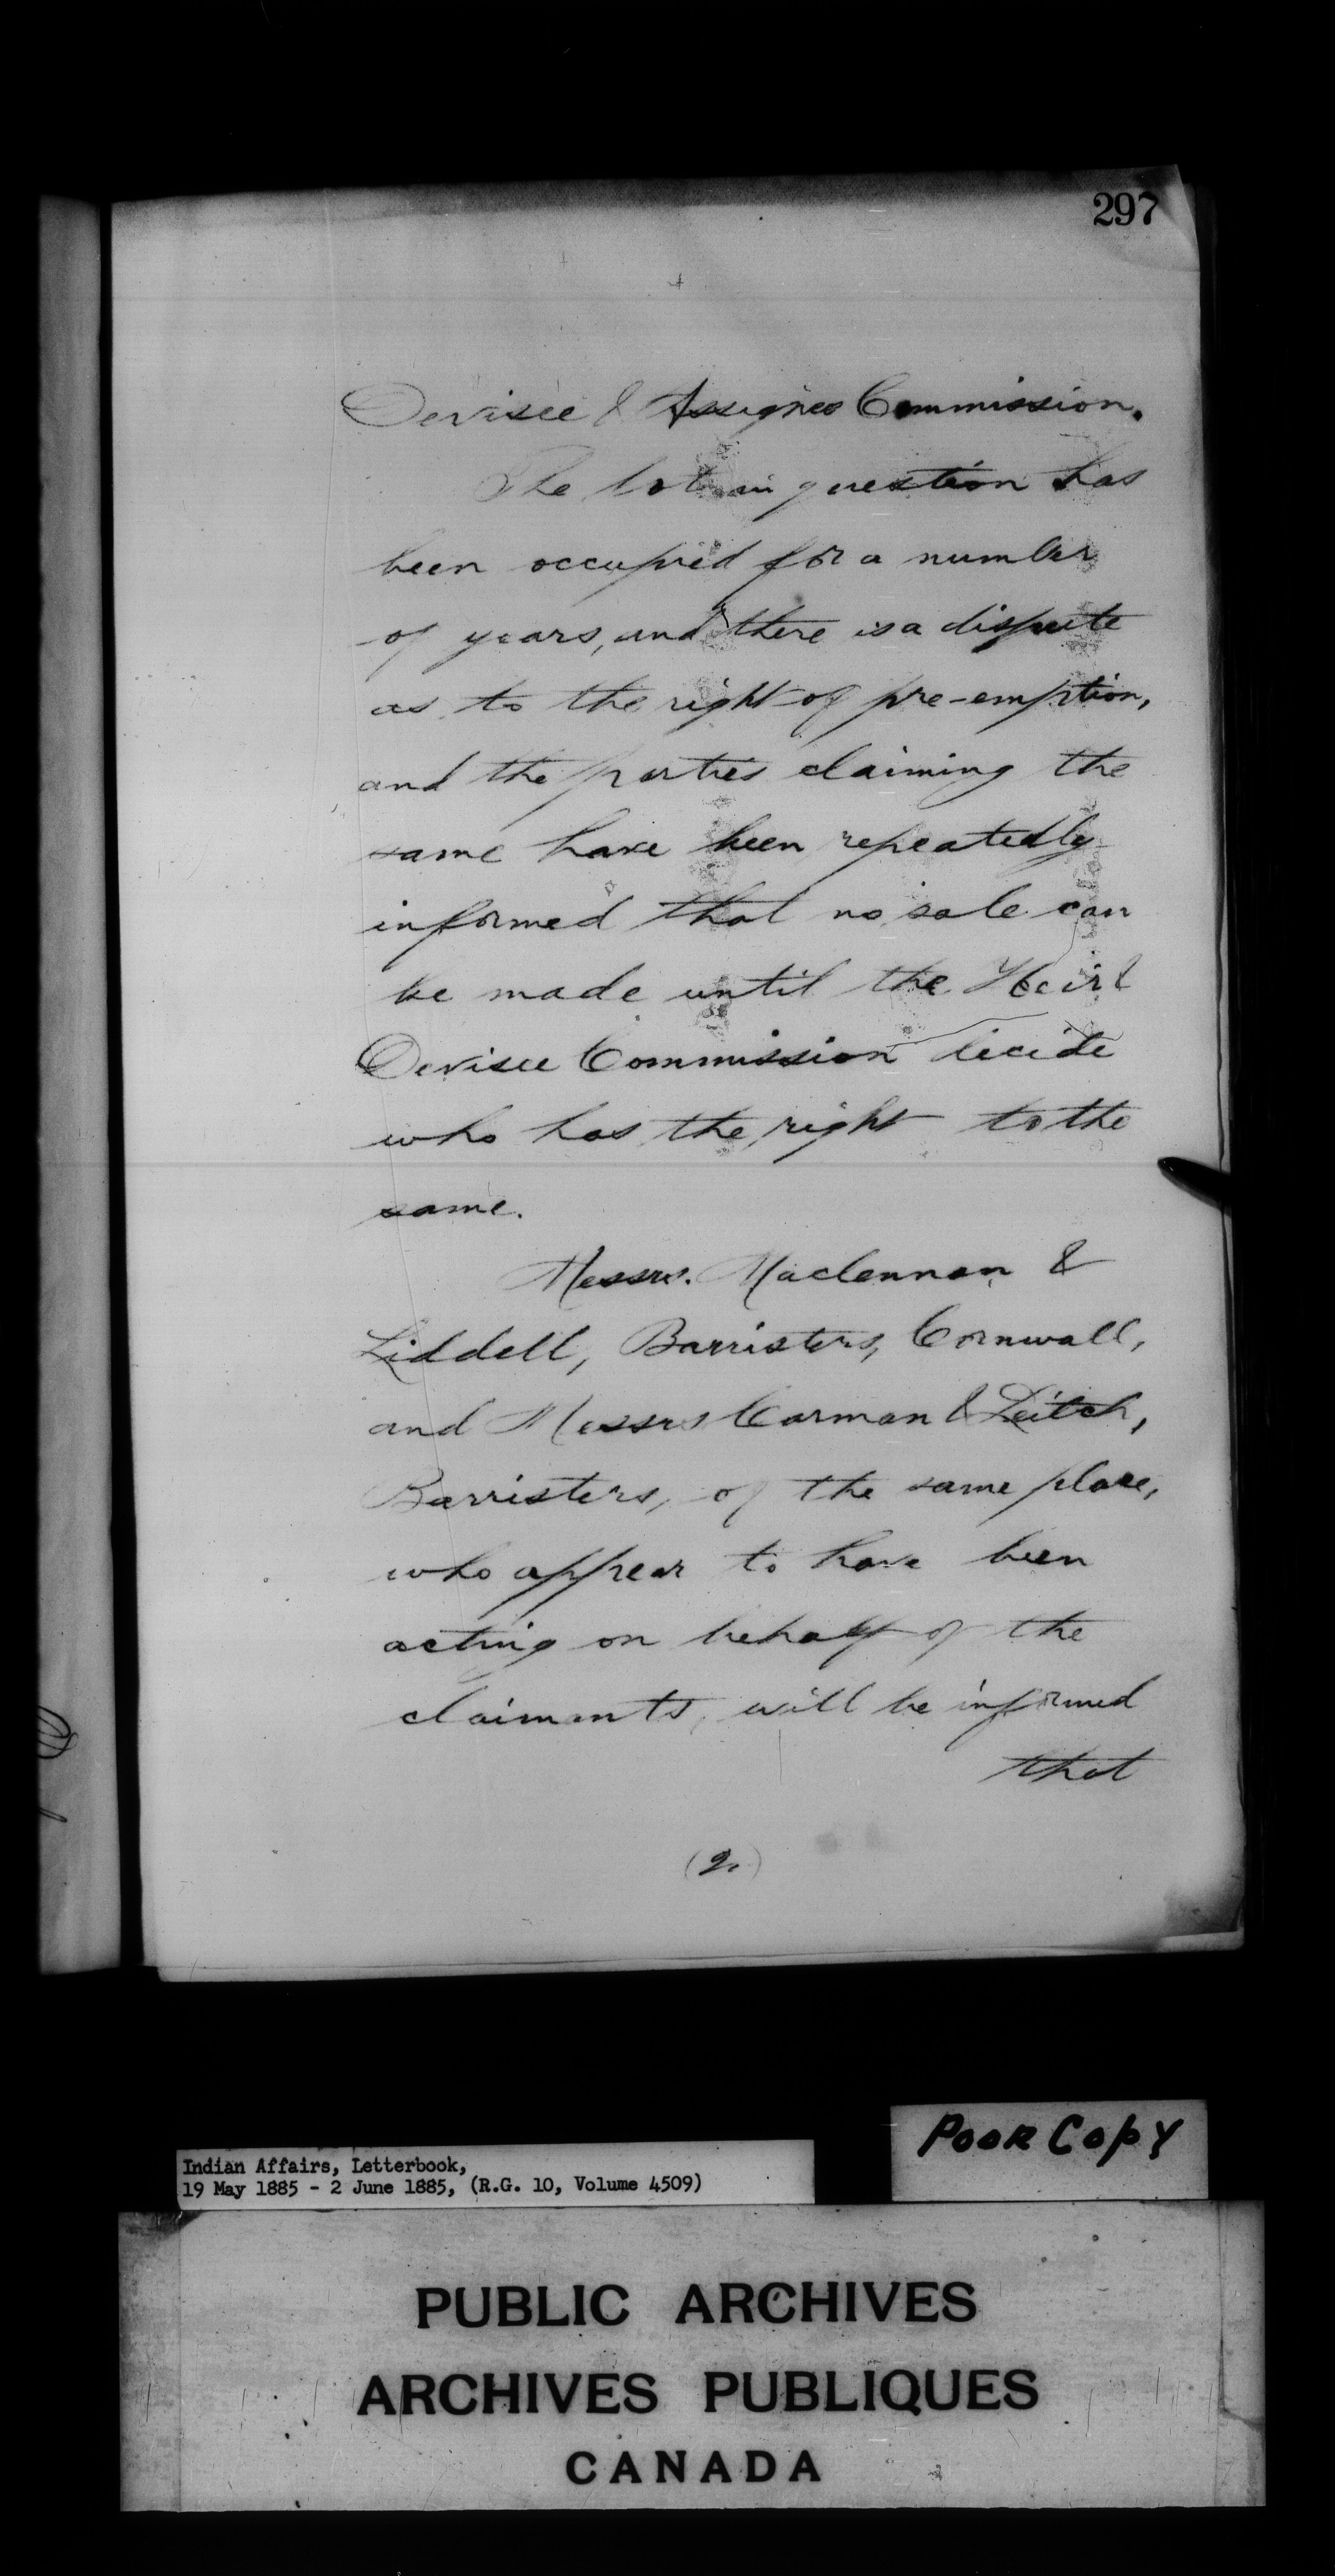 297
Devisee & Assignee Commission.
The lot in question has
been occupied for a number
of years, and there is a dispute
as to the right of pre-emption,
and the parties claiming the
same have been repeatedly
informed that no sale can
be made until the Heir &
Devisee Commission decide
who has the right to the
same.
Messrs. Maclennan &
Liddell, Barristers, Cornwall,
and Messrs Carman & Leitch,
Barristers, of the same place,
who appear to have been
acting on behalf of the
claimants, will be informed
that
(2.)
Poor Copy
Indian Affairs, Letterbook,
19 May 1885 - 2 June 1885, (R.G. 10, Volume 4509)
PUBLIC ARCHIVES
ARCHIVES PUBLIQUES
CANADA